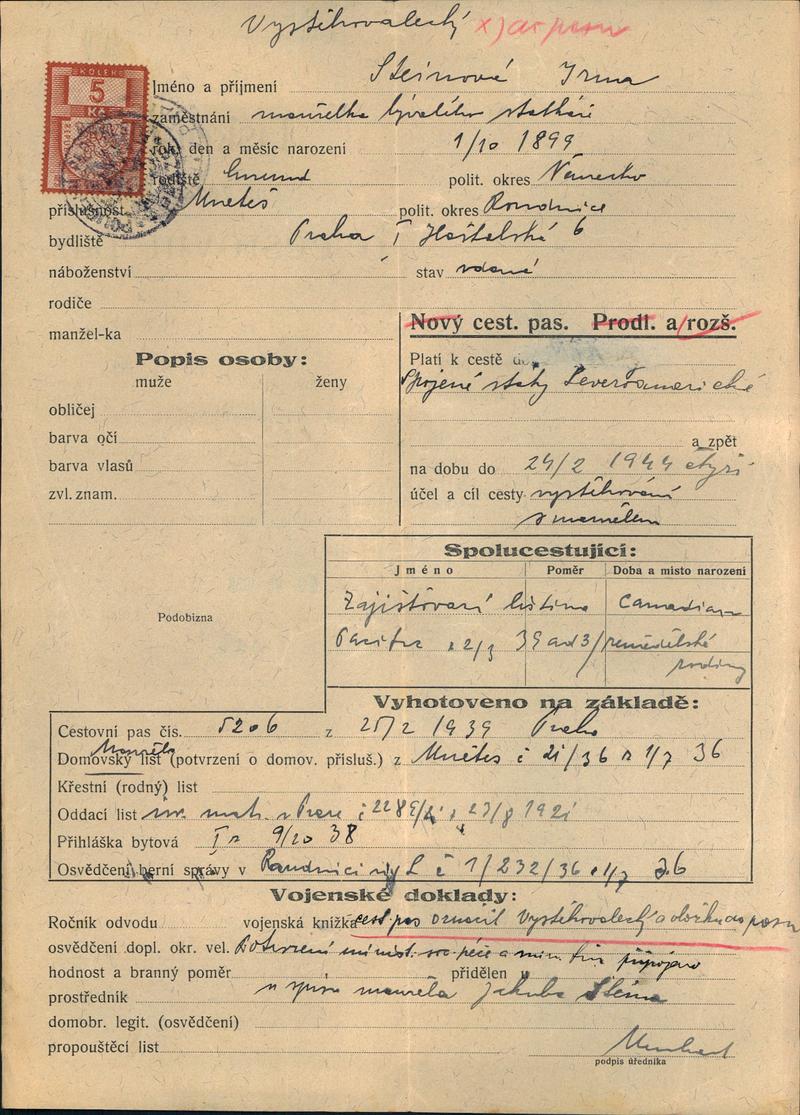 Vystěhovalecký
KOLEK
5
Kč
Jméno a příjmení Steinová Irma
zaměstnání manželka bývalého statkáře
rok, den a měsíc narození 1/10 1899
rodiště Gmund polit. okres Německo
příslušnost Mnetěš polit. okres Roudnice
bydliště Praha I Haštalská 6
náboženství stav vdaná
rodiče
manžel-ka
Nový cest. pas. Prodl. a rozš.
Popis osoby:
muže ženy
obličej
barva očí
barva vlasů
zvl. znam.
Platí k cestě do
Spojené státy Severoamerické
a zpět
na dobu do 24/2 1944 čtyři
účel a cíl cesty vystěhování
s manželem
Spolucestující:
Jméno Poměr Doba a misto narozeni
Zajišťovací listina Canadian
Pacific 2/3 39 zemědělské
rodiny
Podobizna
Vyhotoveno na základě:
Cestovní pas čís. 5206 z 25/2 1939 Praha
manžela
Domovský list (potvrzení o domov. přísluš.) z Mnetěš č 21/36 z 1/7 36
Křestní (rodný) list
Oddací list v Praze č 27/8 1921
Přihláška bytová I z 9/10 38
Osvědčení berní správy v Roudnici n/L č 1/232/36 1/7 36
Vojenské doklady:
Ročník odvodu vojenská knížka cest. pas označit Vystěhovalecký a doložku do pasu
osvědčení dopl. okr. vel. Potvrzení minist. soc. péče a min. fin. připojeno
hodnost a branný poměr přidělen
prostředník u spisu manžela Jakuba Steina
domobr. legit. (osvědčení)
propouštěcí list
podpis úředníka